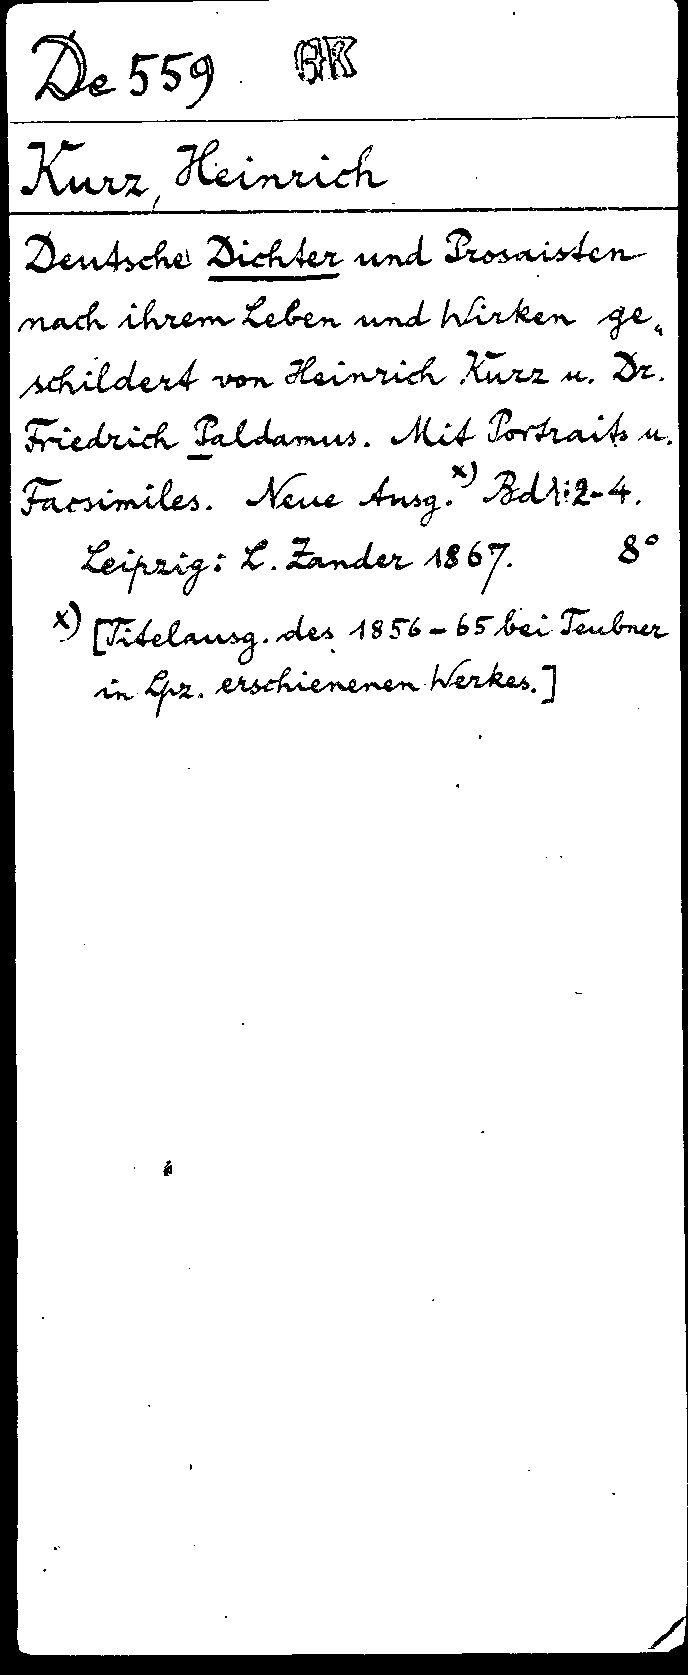 De 559 GK
Kurz, Heinrich
Deutsche Dichter und Prosaisten
nach ihrem Leben und Wirken ge„
schildert von Heinrich Kurz u. Dr.
Friedrich Paldamus. Mit Portraits u.
Facsimiles. Neue Ausg.x) Bd 1:2-4.
Leipzig: L. Zander 1867. 8°
x) [Titelausg. des 1856-65 bei Teubner
in Lpz. erschienenen Werkes.]